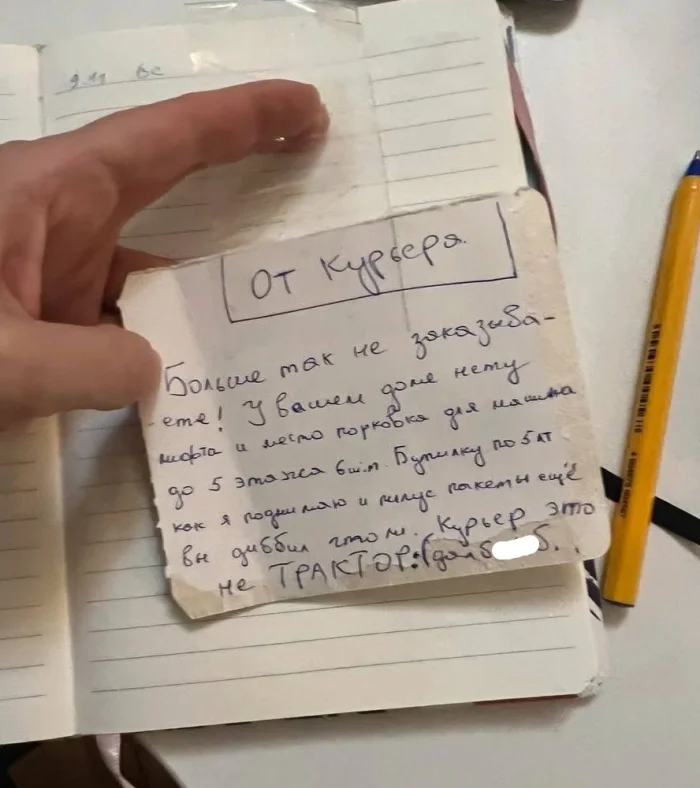 9.11 Вс
От Курьера.
Больше так не заказыва-
ете! У вашем доме нету
лифта и место порковка для машина
до 5 этажа 6 ш.т. Бутилку по 5 лт
как я поднимаю и пилус пакеты ещё
вы диббил штоли. Курьер это
не ТРАКТОР:(